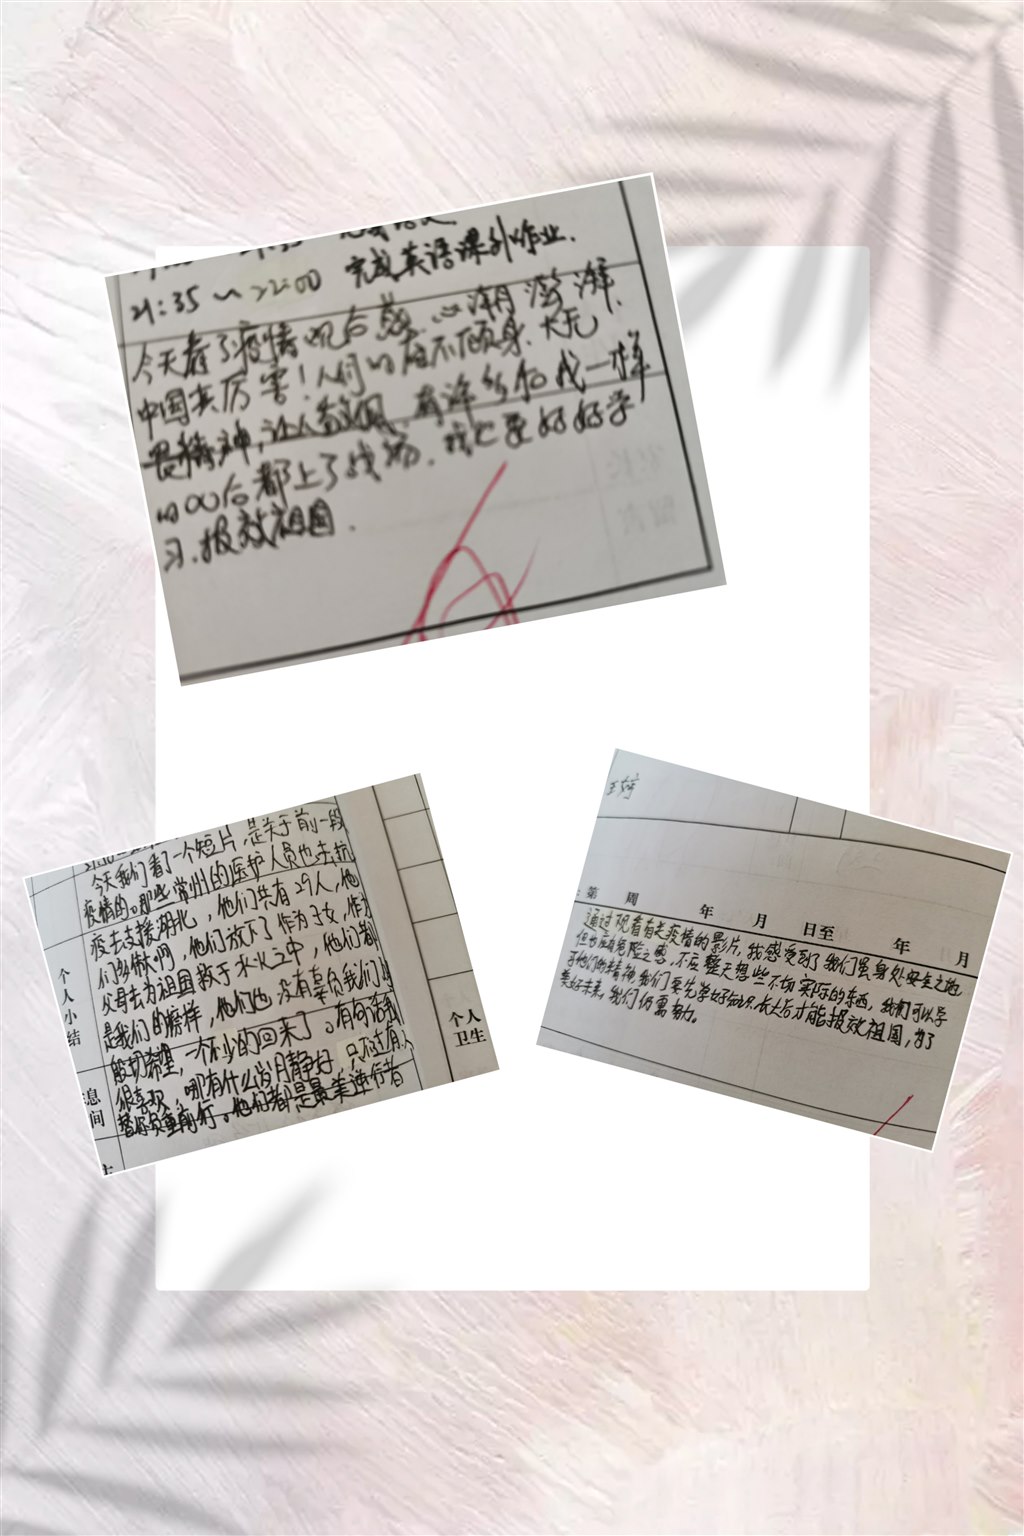 21:35~22:00 完成英语课外作业.
今天看了疫情观后感,心潮澎湃,
中国真厉害!人们的奋不顾身、大无
畏精神,让人敬佩,有许多和我一样
的00后都上了战场,我也要好好学
习,报效祖国.
今天我们看了一个短片,是关于前一段
疫情的。那些常州的医护人员也去抗
疫去支援湖北,他们共有29人,他
们纷纷,他们放下了作为子女,作为
父母去为祖国救于水火之中,他们都
是我们的榜样,他们也没有辜负我们的
殷切希望,一个不少的回来了。有句话我
很喜欢,哪有什么岁月静好,只不过有人
替你负重前行。他们都是最美逆行者
个人小结
息间
个人
卫生
第 周 年 月 日至 年 月
通过观看有关疫情的影片,我感受到了我们虽身处安全之地
但也应有危险之感,不应整天想些不切实际的东西,我们可以学
习他们的精神,我们要先学好知识,长大后才能报效祖国,为了
美好未来,我们仍需努力。